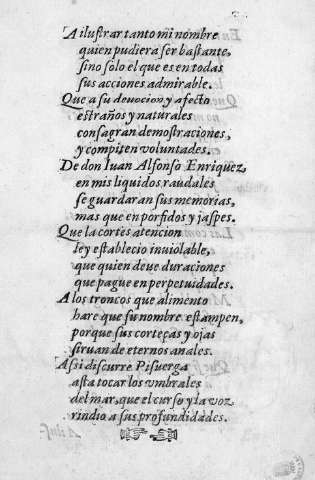 A ilustrar tanto mi nombre
quien pudiera ser bastante,
sino solo el que es en todas
sus acciones admirable.
Que a su deuocion y afecto
estraños y naturales
consagran demostraciones,
y compiten voluntades.
De don Iuan Alfonso Enriquez
en mis liquidos raudales
se guardaran sus memorias,
mas que en porfidos y jaspes.
Que la cortes atencion
ley establecio inuiolable,
que quien deue duraciones
que pague en perpetuidades.
A los troncos que alimento
hare que su nombre estampen,
porque sus corteças y ojas
siruan de eternos anales.
Assi discurre Pisuerga
asta tocar los vmbrales
del mar, que el curso y la voz
rindio a sus profundidades.